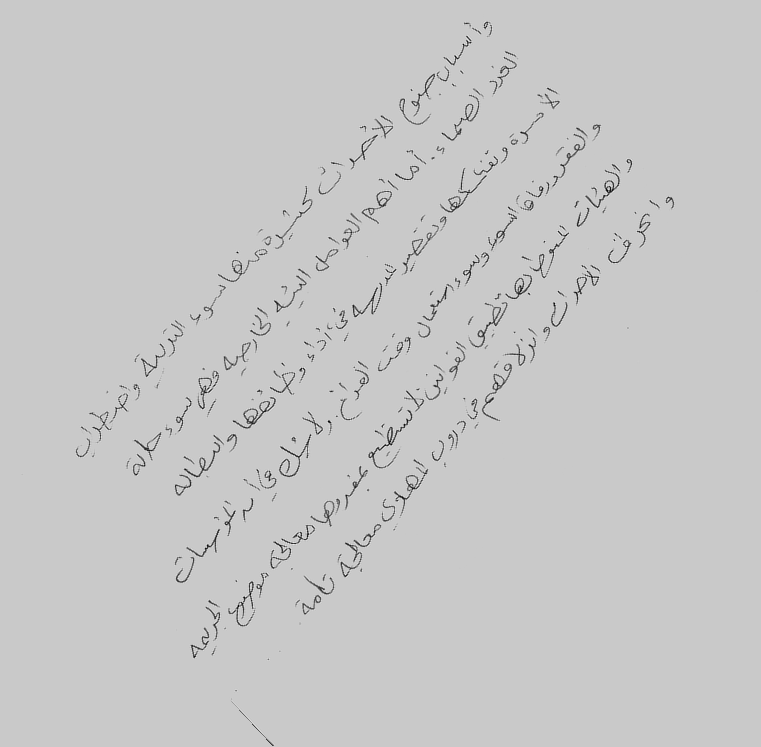 وأسباب جنوح الأحداث كثيرة منها سوء التربية واضطراب
الغدد الصماء. أما أهم العوامل البيئيه الخارجيه فهي سوء حالة
الأسرة وتفككها وتقصير المدرسه في أداء وظائفها والبطاله
والفقر ورفاق السوء وسوء استعمال وقت الفراغ. ولا شك في أن المؤسسات
والهيئات المنوط بها تطبيق القوانين لا تستطيع بمفردها معالجة موضوع الجريمه
وانحراف الأحداث وانزلاقهم في دروب المهالك معالجة تامة